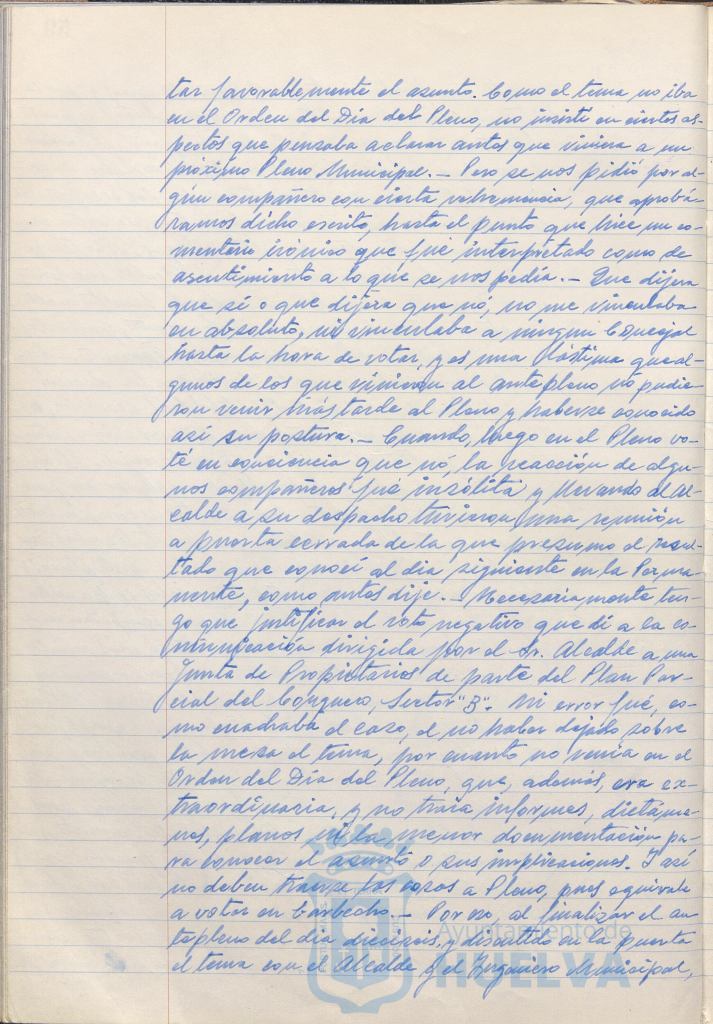 tar favorablemente el asunto. Como el tema no iba
en el Orden del Día del Pleno, no insistí en ciertos as-
pectos que pensaba aclarar antes que viniera a un
próximo Pleno Municipal.- Pero se nos pidió por al-
gún compañero con cierta vehemencia, que aprobá-
ramos dicho escrito, hasta el punto que hice un co-
mentario irónico que fué interpretado como de
asentimiento a lo que se nos pedía.- Que dijera
que sí o que dijera que nó, no me vinculaba
en absoluto, ni vinculaba a ningún Concejal
hasta la hora de votar, y es una lástima que al-
gunos de los que vinieron al antepleno no pudie-
ron venir más tarde al Pleno y haberse conocido
así su postura.- Cuando, luego en el Pleno vo-
té en conciencia que nó, la reacción de algu-
nos compañeros fué insólita y llevando al Al-
calde a su despacho tuvieron una reunión
a puerta cerrada de la que presumo el resul-
tado que conocí al día siguiente en la Perma-
nente, como antes dije.- Necesariamente ten-
go que justificar el voto negativo que dí a la co-
municación dirigida por el Sr. Alcalde a una
Junta de Propietarios de parte del Plan Par-
cial del Conquero, Sector "B". Mi error fué, co-
mo cuadraba el caso, el no haber dejado sobre
la mesa el tema, por cuanto no venía en el
Orden del Día del Pleno, que, además, era ex-
traordinaria, y no traía informes, dictáme-
nes, planos ni la menor documentación pa-
ra conocer el asunto o sus implicaciones. Y así
no deben traerse las cosas a Pleno, pues equivale
a votar en barbecho.- Por eso, al finalizar el an-
tepleno del día dieciseis, y discutido en la puerta
el tema con el Alcalde y el Ingeniero Municipal,
Ayuntamiento de
HUELVA